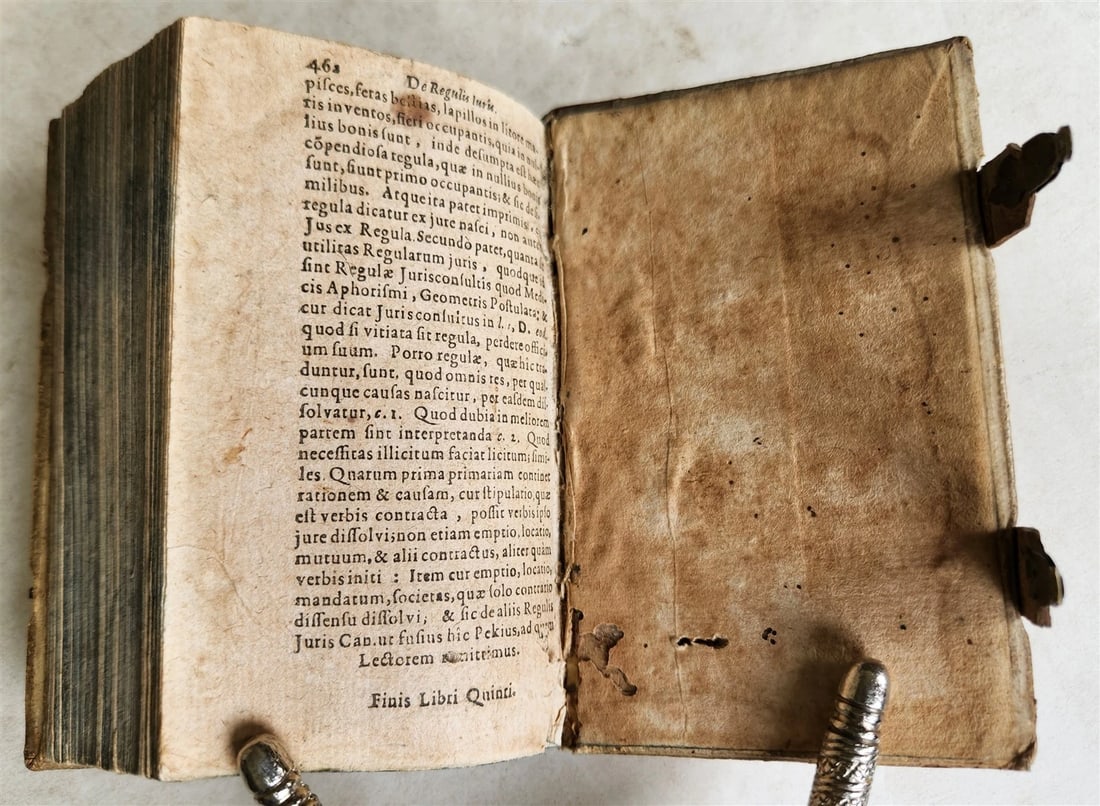 462 De Regulis Iuris.
pisces, feras bestias, lapillos in litore ma-
ris inventos, fieri occupantis, quia in nul-
lius bonis sunt, inde desumpta est hæc
cõpendiosa regula, quæ in nullius bonis
sunt, fiunt primo occupantis; & sic de si-
milibus. Atque ita patet imprimis,
regula dicatur ex jure nasci, non autem
Jus ex Regula. Secundò patet, quanta sit
utilitas Regularum juris, quodque
sint Regulæ Jurisconsultis quod Medi-
cis Aphorismi, Geometris Postulata; &
cur dicat Jurisconsultus in l. 1, D. eod.
quod si vitiata sit regula, perdere offici-
um suum. Porro regulæ, quæ hic tra-
duntur, sunt, quod omnis res, per quas-
cunque causas nascitur, per easdem dis-
solvatur, c. 1. Quod dubia in meliorem
partem sint interpretanda c. 2. Quod
necessitas illicitum faciat licitum; simi-
les. Quarum prima primariam continet
rationem & causam, cur stipulatio, quæ
est verbis contracta, possit verbis ipso
jure dissolvi; non etiam emptio, locatio,
mutuum, & alii contractus, aliter quàm
verbis initi : Item cur emptio, locatio,
mandatum, societas, quæ solo contrario
dissensu dissolvi, & sic de aliis Regulis
Juris Can. ut fusius hîc Pekius, ad quem
Lectorem remittimus.
Finis Libri Quinti.